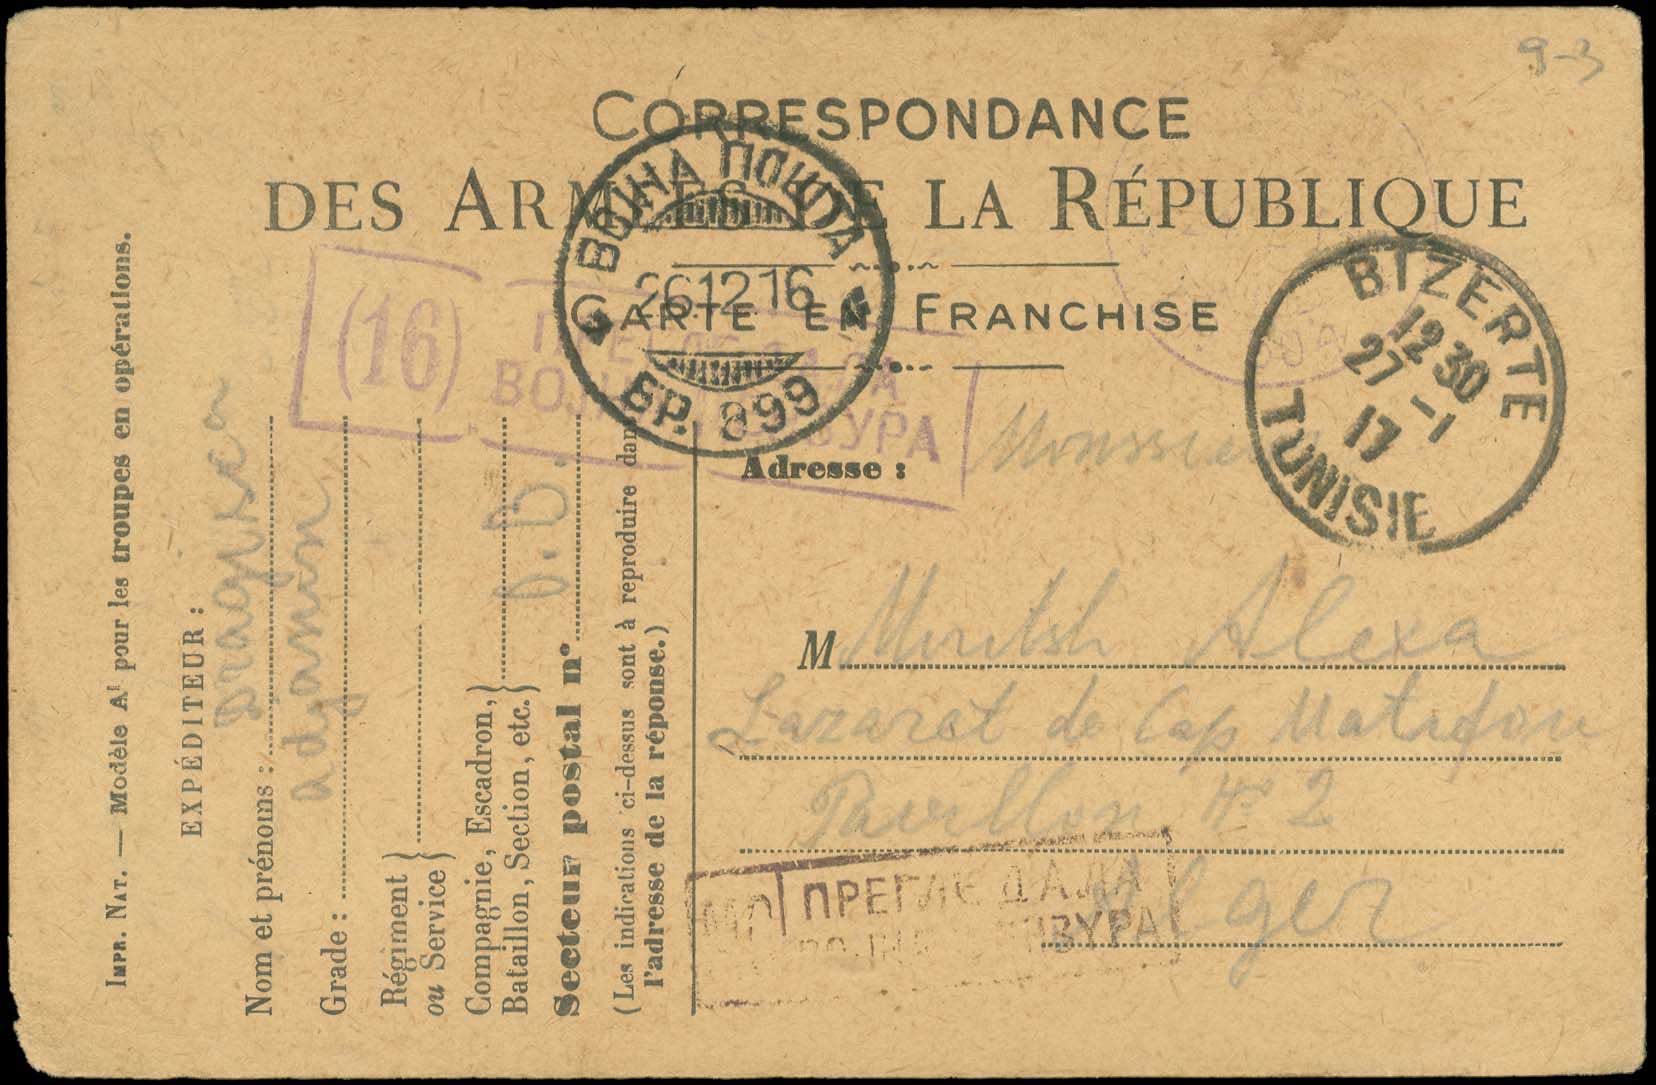 9-3
CORRESPONDANCE
DES ARMÉES DE LA RÉPUBLIQUE
CARTE EN FRANCHISE
ВОЈНА ПОШТА
26.12.16
БР. 999
BIZERTE
12 30
27 -1
17
TUNISIE
(16) ПРЕГЛЕДАЛА
ВОЈНА ЦЕНЗУРА
Adresse : Monsieur
M Miritsh Alexa
Lazaret de Cap Matifou
Pavillon No 2
Alger
ПРЕГЛЕДАЛА
ВОЈНА ЦЕНЗУРА
IMPR. NAT. — Modèle A¹ pour les troupes en opérations.
EXPÉDITEUR :
Nom et prénoms :
Grade :
Régiment
ou Service }
Compagnie, Escadron,
Bataillon, Section, etc. }
Secteur postal n°
(Les indications ci-dessus sont à reproduire dans
l'adresse de la réponse.)